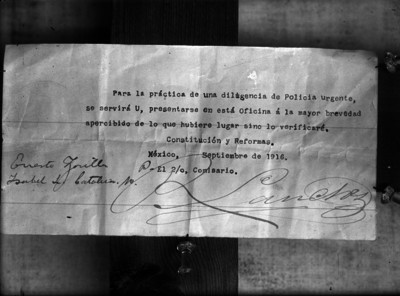 Para la práctica de una diligencia de Policía urgente,
se servirá U, presentarse en está Oficina á la mayor brevedad
apercibido de lo que hubiere lugar sino lo verificare.
Constitución y Reformas.
México, Septiembre de 1916.
El p/o, Comisario.
Isabel la Católica
Sanchez